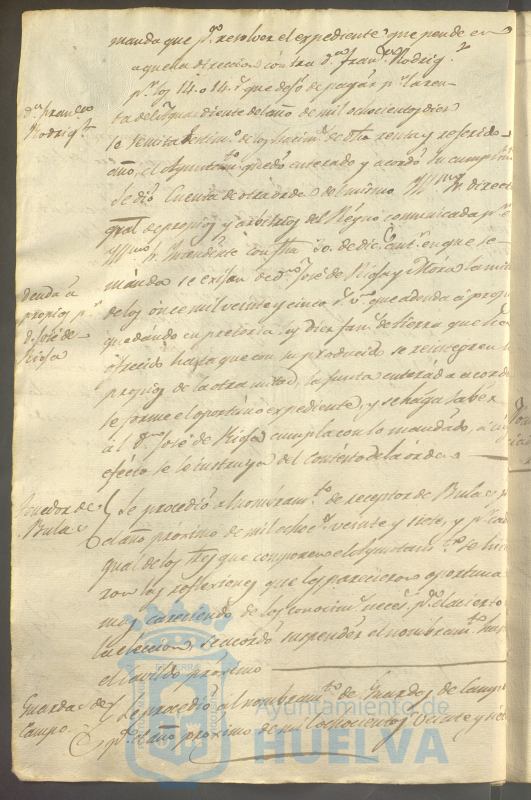 manda que pª. resolver el expediente que pende en
aquella direccion contra dª. Franª. Rodrig.ᶻ
pr. los 14. o 14.
dª. Franca
Rodrigᶻ.
que dejó de pagar pr. la ren-
ta de aguardiente del año de mil ochocientos diez
se remita de los de dha renta y referido
año, el Ayuntamto. quedó enterado y acordó su cumplimto.
Se dió Cuenta de otra orden del mismo Sr. director
gral. de propios y arbitrios del Reyno comunicada pr. el
Sr. Yntendente con fha 30. de dice. ant. en que se
manda se exijan de dn. José de Rioja y Mora la mitad
deuda á
propios pr.
dn. José de
Rioja
de los once mil veinte y cinco rs. vn. que adeuda á propios
quedando en pretoria y diez fans. de tierra que tiene
ofrecido hasta que con su producido se reintegren los
propios de la otra mitad, la Junta enterada acordó
se forme el oportuno expediente, y se haga saber
al dn. José de Rioja cumpla con lo mandado, á cuyo
efecto se le instruya del contesto de la órden
de
Bulas
Se procedió al nombramto. de receptor de Bulas pª.
el año próximo de mil ochocs. veinte y siete, y pr. cada
qual de los Sres que componen el Ayuntamto. se hicie-
ron las reflexiones que les parecieron oportunas
mas careciendo de los conocimtos. neces. pª. el acierto
la eleccion, se acordó suspender el nombramto. hasta
el cavildo próximo
Guardas de
Campo.
Se procedió al nombramto. de Guardas de Campo
pª. el año próximo de mil ochocientos veinte y siete
Ayuntamiento de
HUELVA